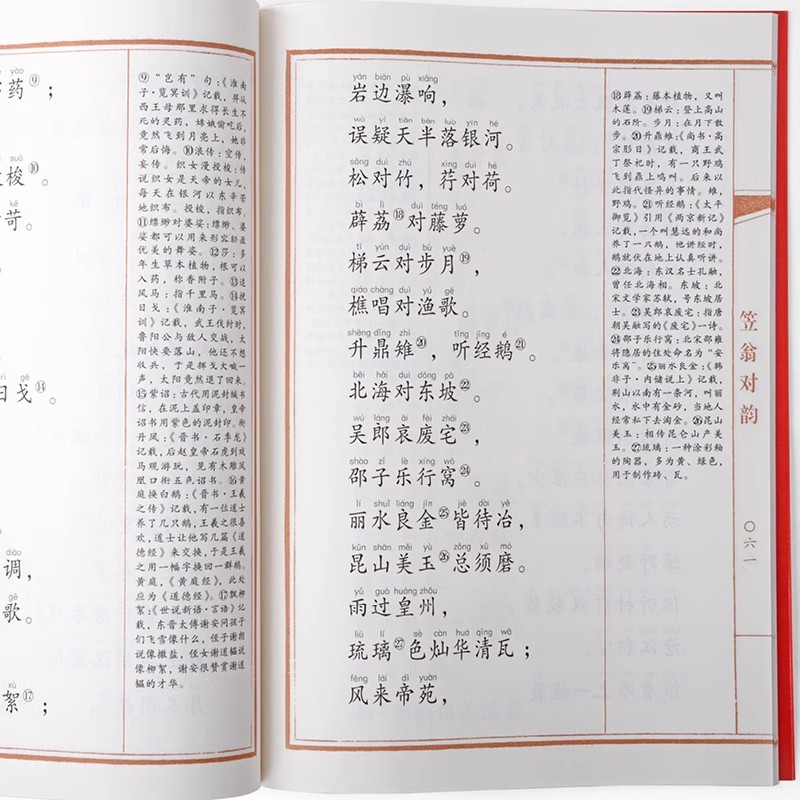 yào
药⑨；
suō
梭⑩。
kē
苛。
gē
日戈⑭。
diào
调，
gē
歌。
xù
絮⑰；
⑨“岂有”句：《淮南
子·览冥训》记载，羿从
西王母那里求得长生不
死的灵药，嫦娥偷吃后，
竟然飞到月亮上，她非
常后悔。⑩浪传：空传，
妄传。织女漫投梭：传
说织女是天帝的女儿，
每天在银河以东辛苦
地织布。投梭，指织布。
⑪缥缈对婆娑：缥缈、婆
娑都可以用来形容轻盈
优美的舞姿。⑫莎：多
年生草本植物，根可以
入药，称香附子。⑬追
风马：指千里马。⑭挽
日戈：《淮南子·览冥
训》记载，武王伐纣时，
鲁阳公与敌人交战，太
阳快要落山，他还不想
收兵，于是挥戈大喊一
声，太阳竟然退了回来。
⑮紫诏：古代用泥封缄书
信，在泥上盖印章，皇帝
诏书用紫色的泥封印。衔
丹凤：《晋书·石季龙》
记载，后赵皇帝石虎到戏
马观游玩，见有木雕凤
凰口衔五色诏书。⑯黄
庭换白鹅：《晋书·王羲
之传》记载，有一位道士
养了几只鹅，王羲之很喜
欢，道士让他写几篇《道
德经》来交换，于是王羲
之用一幅字换回一群鹅。
黄庭，《黄庭经》，此处
应为《道德经》。⑰飘柳
絮：《世说新语·言语》记
载，东晋太傅谢安问孩子
们飞雪像什么，侄子谢朗
说像撒盐，侄女谢道韫说
像柳絮，谢安很赞赏谢道
韫的才华。
yán biān pù xiǎng
岩边瀑响，
wù yí tiān bàn luò yín hé
误疑天半落银河。
sōng duì zhú xìng duì hé
松对竹，荇对荷。
bì lì duì téng luó
薜荔⑱对藤萝。
tī yún duì bù yuè
梯云对步月⑲，
qiáo chàng duì yú gē
樵唱对渔歌。
shēng dǐng zhì tīng jīng é
升鼎雉⑳，听经鹅㉑。
běi hǎi duì dōng pō
北海对东坡㉒。
wú láng āi fèi zhái
吴郎哀废宅㉓，
shào zǐ lè xíng wō
邵子乐行窝㉔。
lí shuǐ liáng jīn jiē dài yě
丽水良金㉕皆待冶，
kūn shān měi yù zǒng xū mó
昆山美玉㉖总须磨。
yǔ guò huáng zhōu
雨过皇州，
liú lí sè càn huá qīng wǎ
琉璃㉗色灿华清瓦；
fēng lái dì yuàn
风来帝苑，
⑱薜荔：藤本植物，又叫
木莲。⑲梯云：登上高山
的石阶。步月：在月下散
步。⑳升鼎雉：《尚书·高
宗肜日》记载，商王武
丁祭祀时，有一只野鸡
飞到鼎上鸣叫。后来以
此指代怪异的事情。雉，
野鸡。㉑听经鹅：《太平
御览》引用《两京新记》
记载，一个叫慧远的和尚
养了一只鹅，他讲经时，
鹅就伏在地上认真听讲。
㉒北海：东汉名士孔融，
曾任北海相。东坡：北
宋文学家苏轼，号东坡居
士。㉓吴郎哀废宅：指唐
朝吴融写的《废宅》一诗。
㉔邵子乐行窝：北宋邵雍
将隐居的住处命名为“安
乐窝”。㉕丽水良金：《韩
非子·内储说上》记载，
荆山以南有一条河，叫丽
水，水中有金砂，当地人
经常私下去淘金。㉖昆山
美玉：相传昆仑山产美
玉。㉗琉璃：一种涂彩釉
的陶器，多为黄、绿色，
用于制作砖、瓦。
笠翁对韵
〇六一